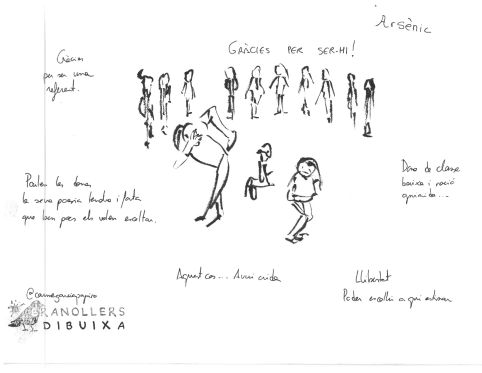 Arsènic
GRÀCIES PER SER-HI!
Gràcies
per ser una
referent.
Parlen les dones
la seva poesia tendra i forta
que ben pocs els volen escoltar.
Dona de classe
baixa i nació
oprimida...
Aquest cos... Avui crida
Llibertat
Poder escollir a qui estimar
@carmegarciapajaro
GRANOLLERS
DIBUIXA